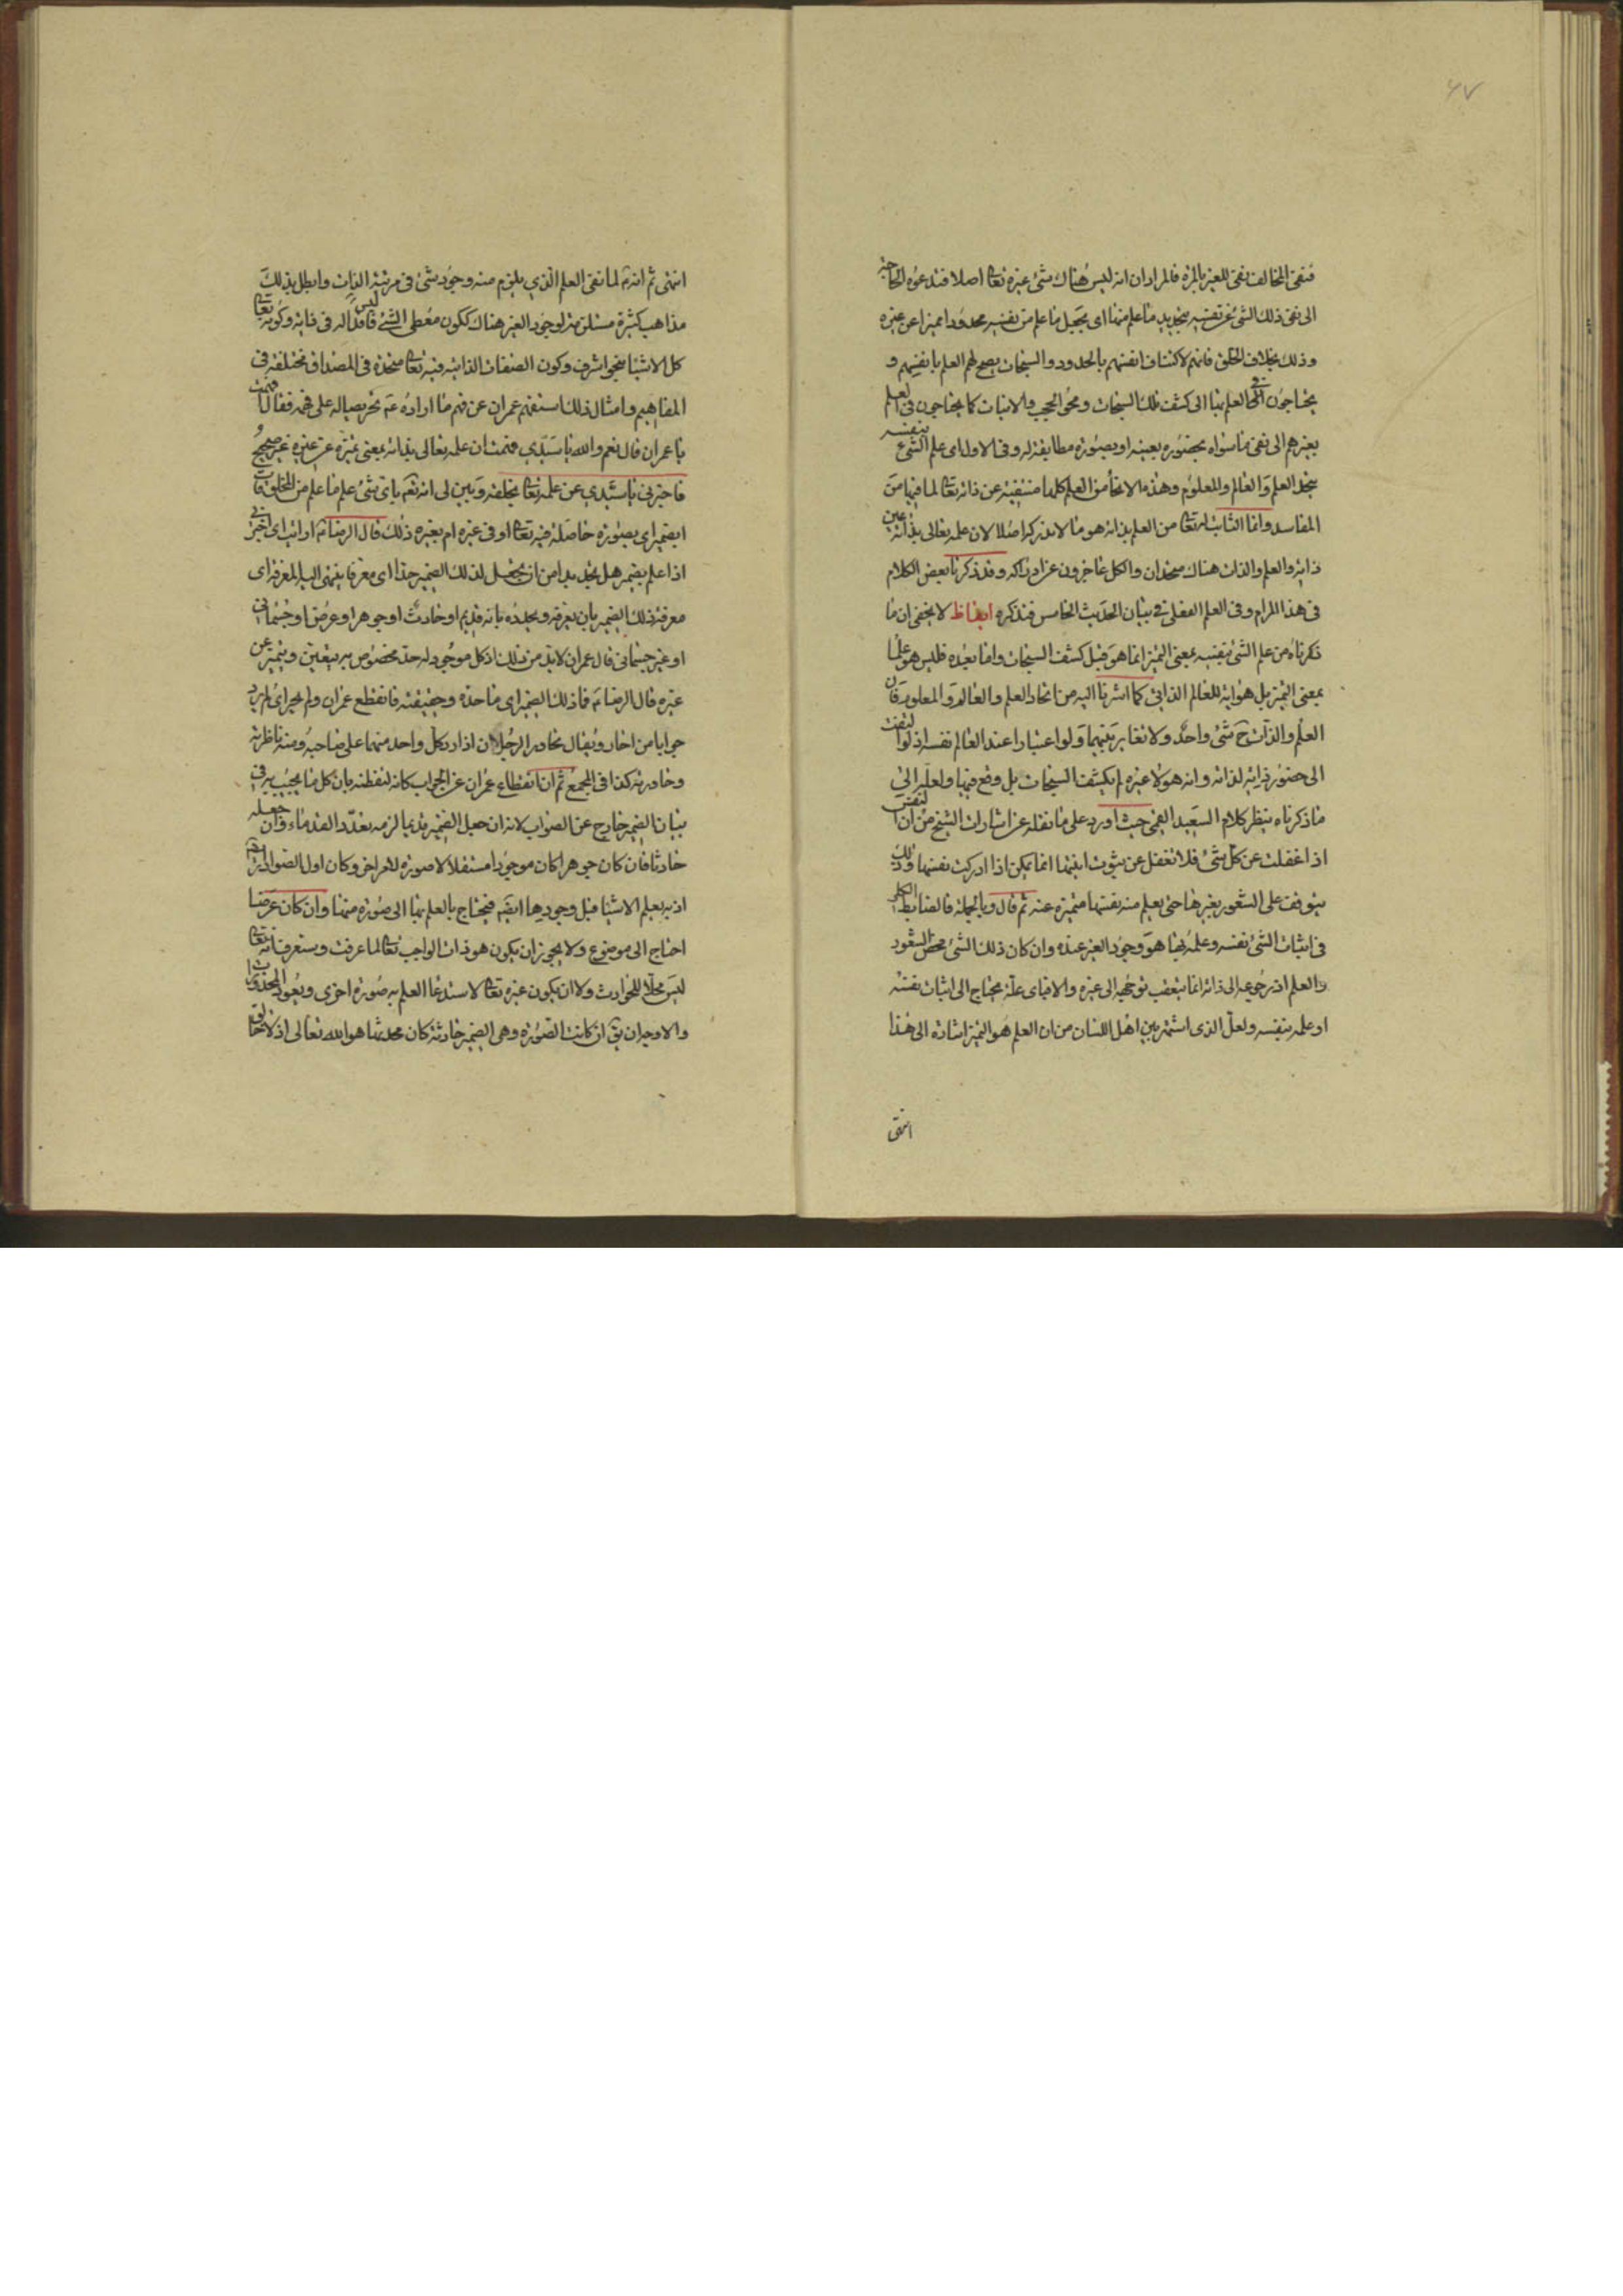 ۴۷
فنفى المخالف نفى للغير بالمرة فالمراد ان انه ليس هناك شئ غيره تعا اصلا فتدعوه الحاجة
الى نفى ذلك الشئ عن نفسه بتحديد ما علم منها اى بجعل ما علم من نفسه محدودا مميزا عن غيره
وذلك بخلاف الخلق فانهم لاكتناف انفسهم بالحدود والسبحات يصح لهم العلم بانفسهم و
يحتاجون فى العلم بها الى كشف تلك السبحات ومحو الحجب والانيات كما يحتاجون فى العلم
بغيرهم الى نفى ما سواه بحضوره بعينه او بصورة مطابقة له وفى الاول اى علم الشئ بنفسه
يتحد العلم والعالم والمعلوم وهذه الانحاء من العلم كلها منتفية عن ذاته تعا لما فيها من
المفاسد واما الثابت له تعا من العلم بذاته هو ما لا يدرك اصلا لان علمه تعالى بذاته عين
ذاته والعلم والذات هناك متحدان والكل عاجزون عن ادراكه وقد ذكرنا بعض الكلام
فى هذا المرام وفى العلم الفعلى فى بيان الحديث الخامس فتذكره ايقاظ لا يخفى ان ما
ذكرناه من علم الشئ بنفسه بمعنى التميز انما هو قبل كشف السبحات واما بعده فليس هو علما
بمعنى التميز بل هو اية للعالم الذاتى كما اشرنا اليه من اتحاد العلم والعالم والمعلوم فان
العلم والذات ح شئ واحد ولا تغاير بينهما ولو اعتبارا عند العالم نفسه اذ لو التفت
الى حضور ذاته لذاته وانه هو لا غيره لم يكشف السبحات بل وقع فيها ولعله الى
ما ذكرناه ينظر كلام السعيد القمى حيث اورد على ما نقله عن اشارات الشيخ من ان النفس
اذا غفلت عن كل شئ فلا تغفل عن ثبوت انيتها انما يمكن اذا ادركت نفسها وذلك
يتوقف على الشعور بغيرها حتى يعلم منه نفسها متميزة عنه ثم قال وبالجملة فالضابط الكلى
فى اثبات الشئ نفسه وعلمه بها هو وجود الغير عنده وان كان ذلك الشئ محض الشعور
والعلم اذ رجوعه الى ذاته انما يتعقب توجهه الى غيره والا فباى علة يحتاج الى اثبات نفسه
او علمه بنفسه ولعل الذى اشتهر بين اهل اللسان من ان العلم هو التميز اشارة الى هذا
انتهى
انتهى ثم انه لما نفى العلم الذى يلزم منه وجود شئ فى مرتبة الذات وابطل بذلك
مذاهب كثيرة مستلزمة لوجود الغير هناك ككون معطى الشئ ليس فاقدا له فى ذاته وكونه تعا
كل الاشيا بنحو اشرف وكون الصفات الذاتية فيه تعا متحدة فى المصداق مختلفة فى
المفاهيم وامثال ذلك استفهم عمران عن فهم ما اراده ع تحريصا له على فهمه فقال افهمت
يا عمران قال نعم والله يا سيدى فهمت ان علمه تعالى بذاته بمعنى تميزه عن غيره غير صحيح
فاخبرنى يا سيدى عن علمه تعا بخلقه وبين لى انه تع باى شئ علم ما علم من المخلوقات
ابضمير اى بصورة حاصلة فيه تعا او فى غيره ام بغيره ذلك قال الرضا ع ارايت اى اخبرنى
اذا علم بضمير هل يجد بدا من ان يجعل لذلك الضمير حدا اى معرفا ينتهى اليه المعرفة اى
معرفة ذلك الضمير بان يعرفه ويحدده بانه قديم او حادث او جوهر او عرض او جسمانى
او غير جسمانى قال عمران لا بد من ذلك اذ كل موجود له حد مخصوص به يتعين ويتميز عن
غيره قال الرضا ع فما ذلك الضمير اى ما حده وحقيقته فانقطع عمران ولم يحر اى لم يرد
جوابا من احار ويقال تحاور الرجلان اذا رد كل واحد منهما على صاحبه ومنه ناظرته
وحاورته كذا فى المجمع ثم ان انقطاع عمران عن الجواب كان لتفطنه بان كل ما يجيب به فى
بيان الضمير خارج عن الصواب لانه ان جعل الضمير قديما لزمه تعدد القدماء وان جعله
حادثا فان كان جوهرا كان موجودا مستقلا لا صورة للعراض وكان اول الصوادر
اذ به يعلم الاشيا قبل وجودها ايضا فيحتاج بالعلم بها الى صورة منها وان كان عرضا
احتاج الى موضوع ولا يجوز ان يكون هو ذات الواجب تعا لما عرفت وستعرف انه تعا
ليس محلا للحوادث ولا ان يكون غيره تعا لاستدعا العلم به صورة اخرى ويعود المحذورات
والاوجه ان يق ان كانت الصورة وهى الضمير حادثة كان محدثها هو الله تعالى اذ لا خالق